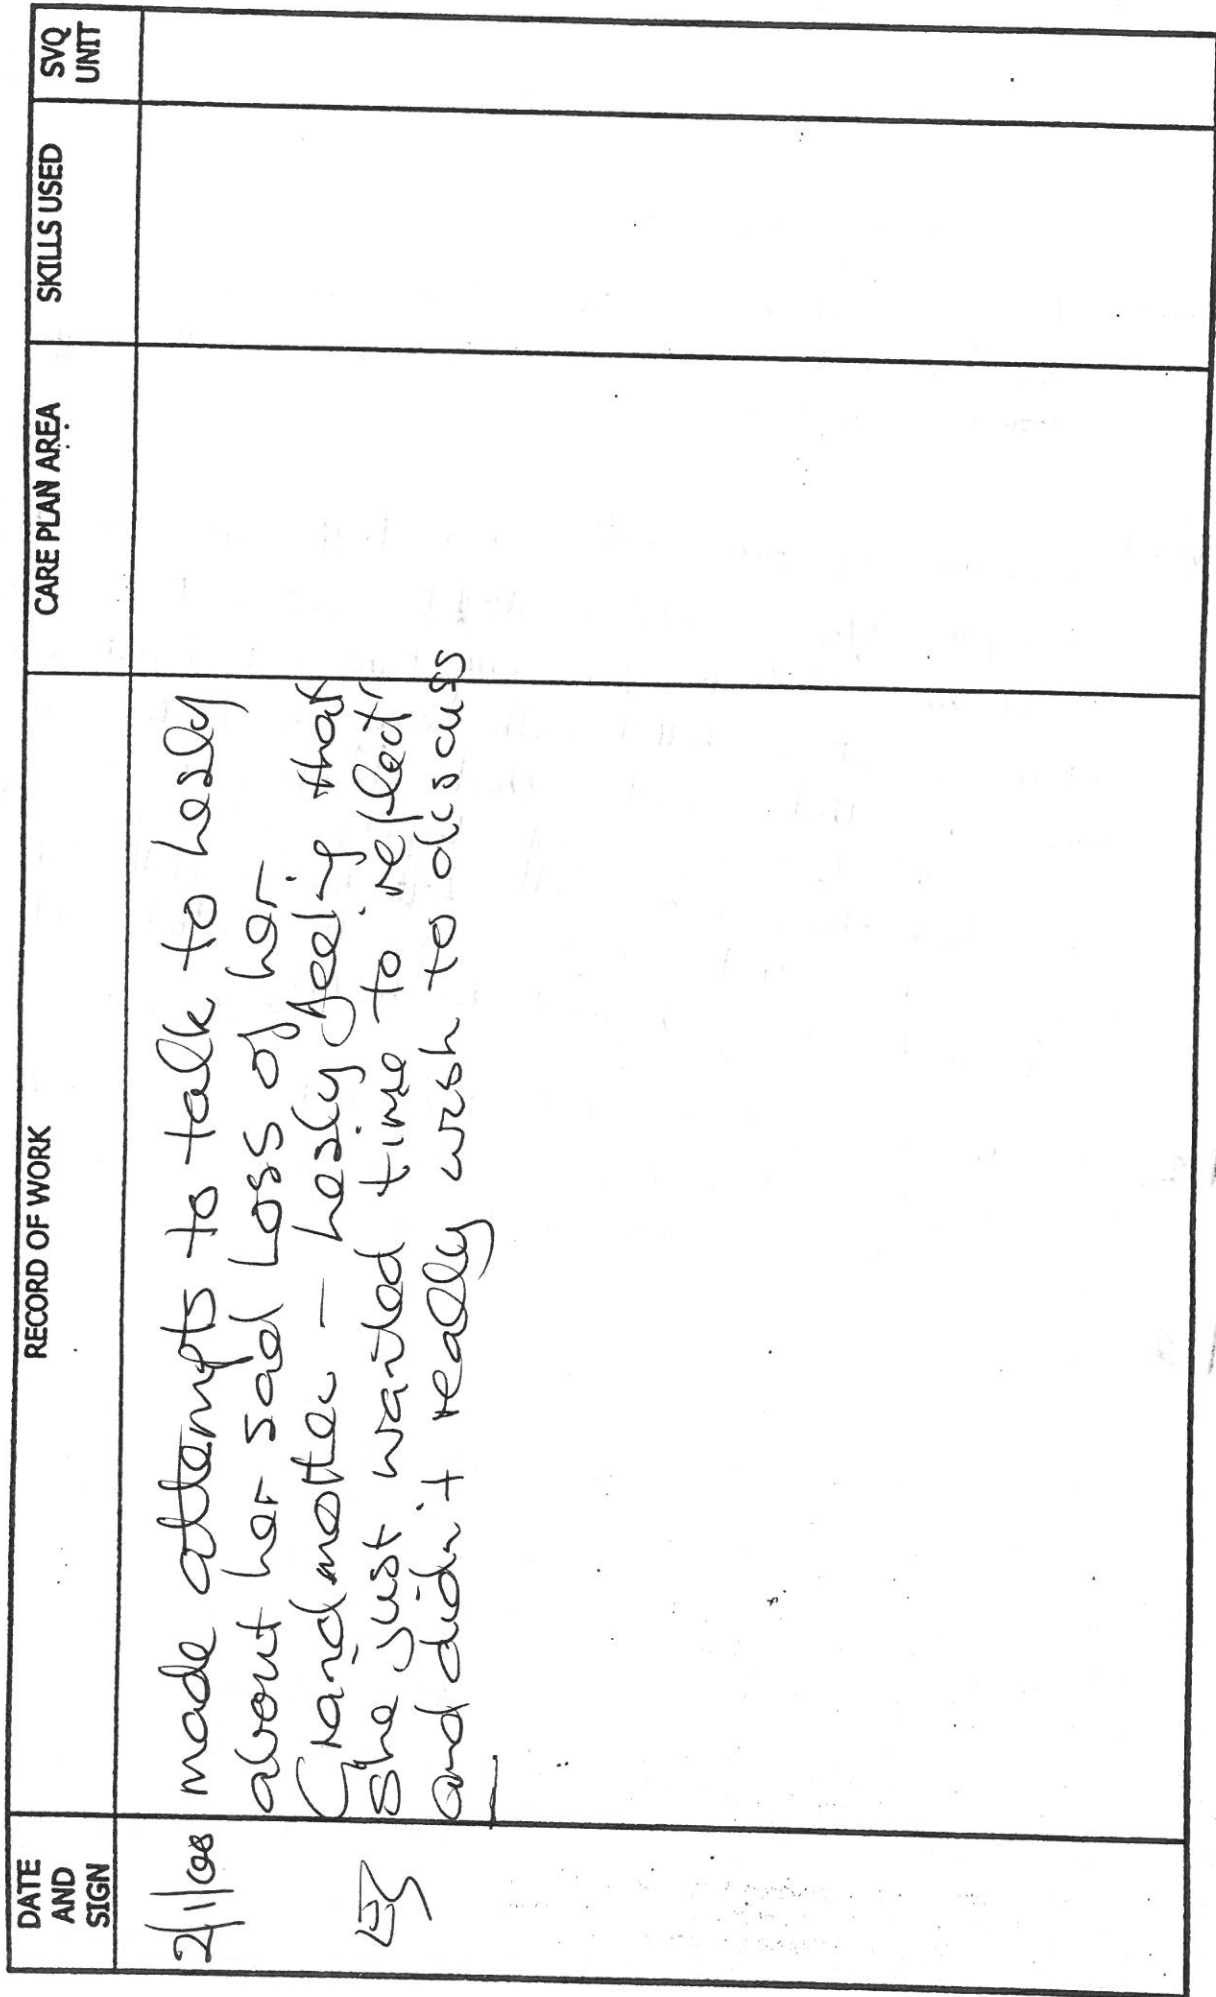 DATE AND SIGN
RECORD OF WORK
CARE PLAN AREA
SKILLS USED
SVQ UNIT
2/1/08
made attempts to talk to Lesly
about her sad Loss of her
Grandmother – Lesly feeling that
She just wanted time to reflect
and didn't really wish to discuss